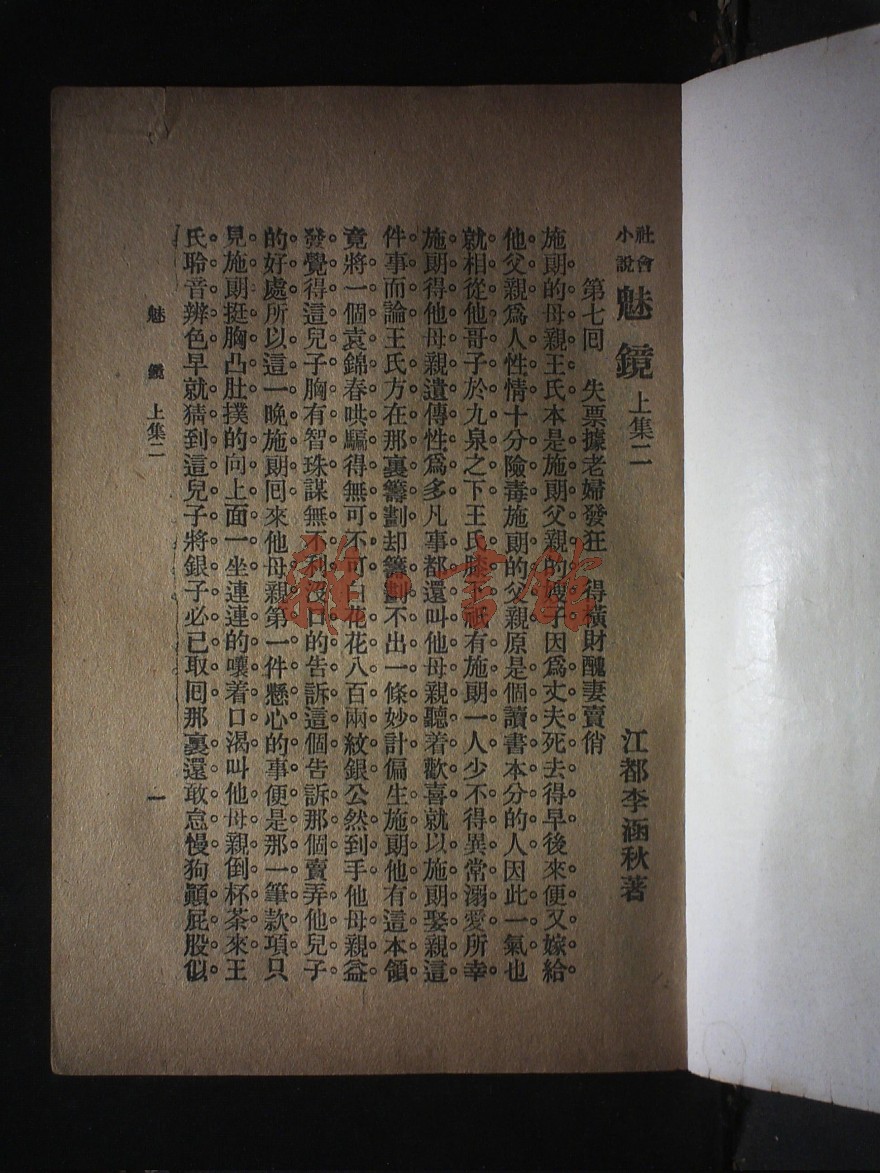 社會小說 魅鏡 上集二 江都李涵秋著
第七回 失票據老婦發狂 得橫財醜妻賣俏
施朗的母親王氏本是施朗父親的嫂子因爲丈夫死去得早後來便又嫁給
他父親爲人性情十分險毒施朗的父親原是個讀書本分的人因此一氣也
就相從他哥子於九泉之下王氏膝祇有施朗一人少不得異常溺愛所幸
施朗得他母親遺傳性爲多凡事都還叫他母親聽着歡喜就以施朗娶親這
件事而論王氏方在那裏籌劃却籌劃不出一條妙計偏生施朗他有這本領
竟將一個袁錦春哄騙得無可不可白花花八百兩紋銀公然到手他母親益
發覺得這兒子胸有智珠謀無不利沒口的告訴這個告訴那個賣弄他兒子
的好處所以這一晚施朗回來他母親第一件懸心的事便是那一筆款項只
見施朗挺胸凸肚撲的向上面一坐連連的嚷着口渴叫他母親倒杯茶來王
氏聆音辨色早就猜到這兒子將銀子必已取回那裏還敢怠慢狗顚屁股似
魅鏡 上集二 一
雜·書館